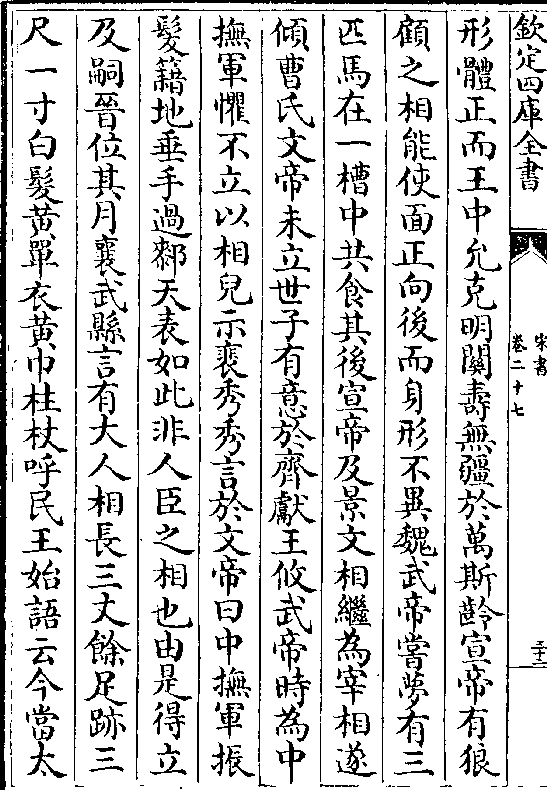 欽定四庫全書
宋書
卷二十七
三十二
形體正而王中允克明關壽無疆於萬斯齡宣帝有狼
顧之相能使面正向後而身形不異魏武帝嘗夢有三
匹馬在一槽中共食其後宣帝及景文相繼為宰相遂
傾曹氏文帝未立世子有意於齊獻王攸武帝時為中
撫軍懼不立以相皃示裴秀秀言於文帝曰中撫軍振
髮籍地垂手過䣛天表如此非人臣之相也由是得立
及嗣晉位其月襄武縣言有大人相長三丈餘足跡三
尺一寸白髮黄單衣黄巾柱杖呼民王始語云今當太